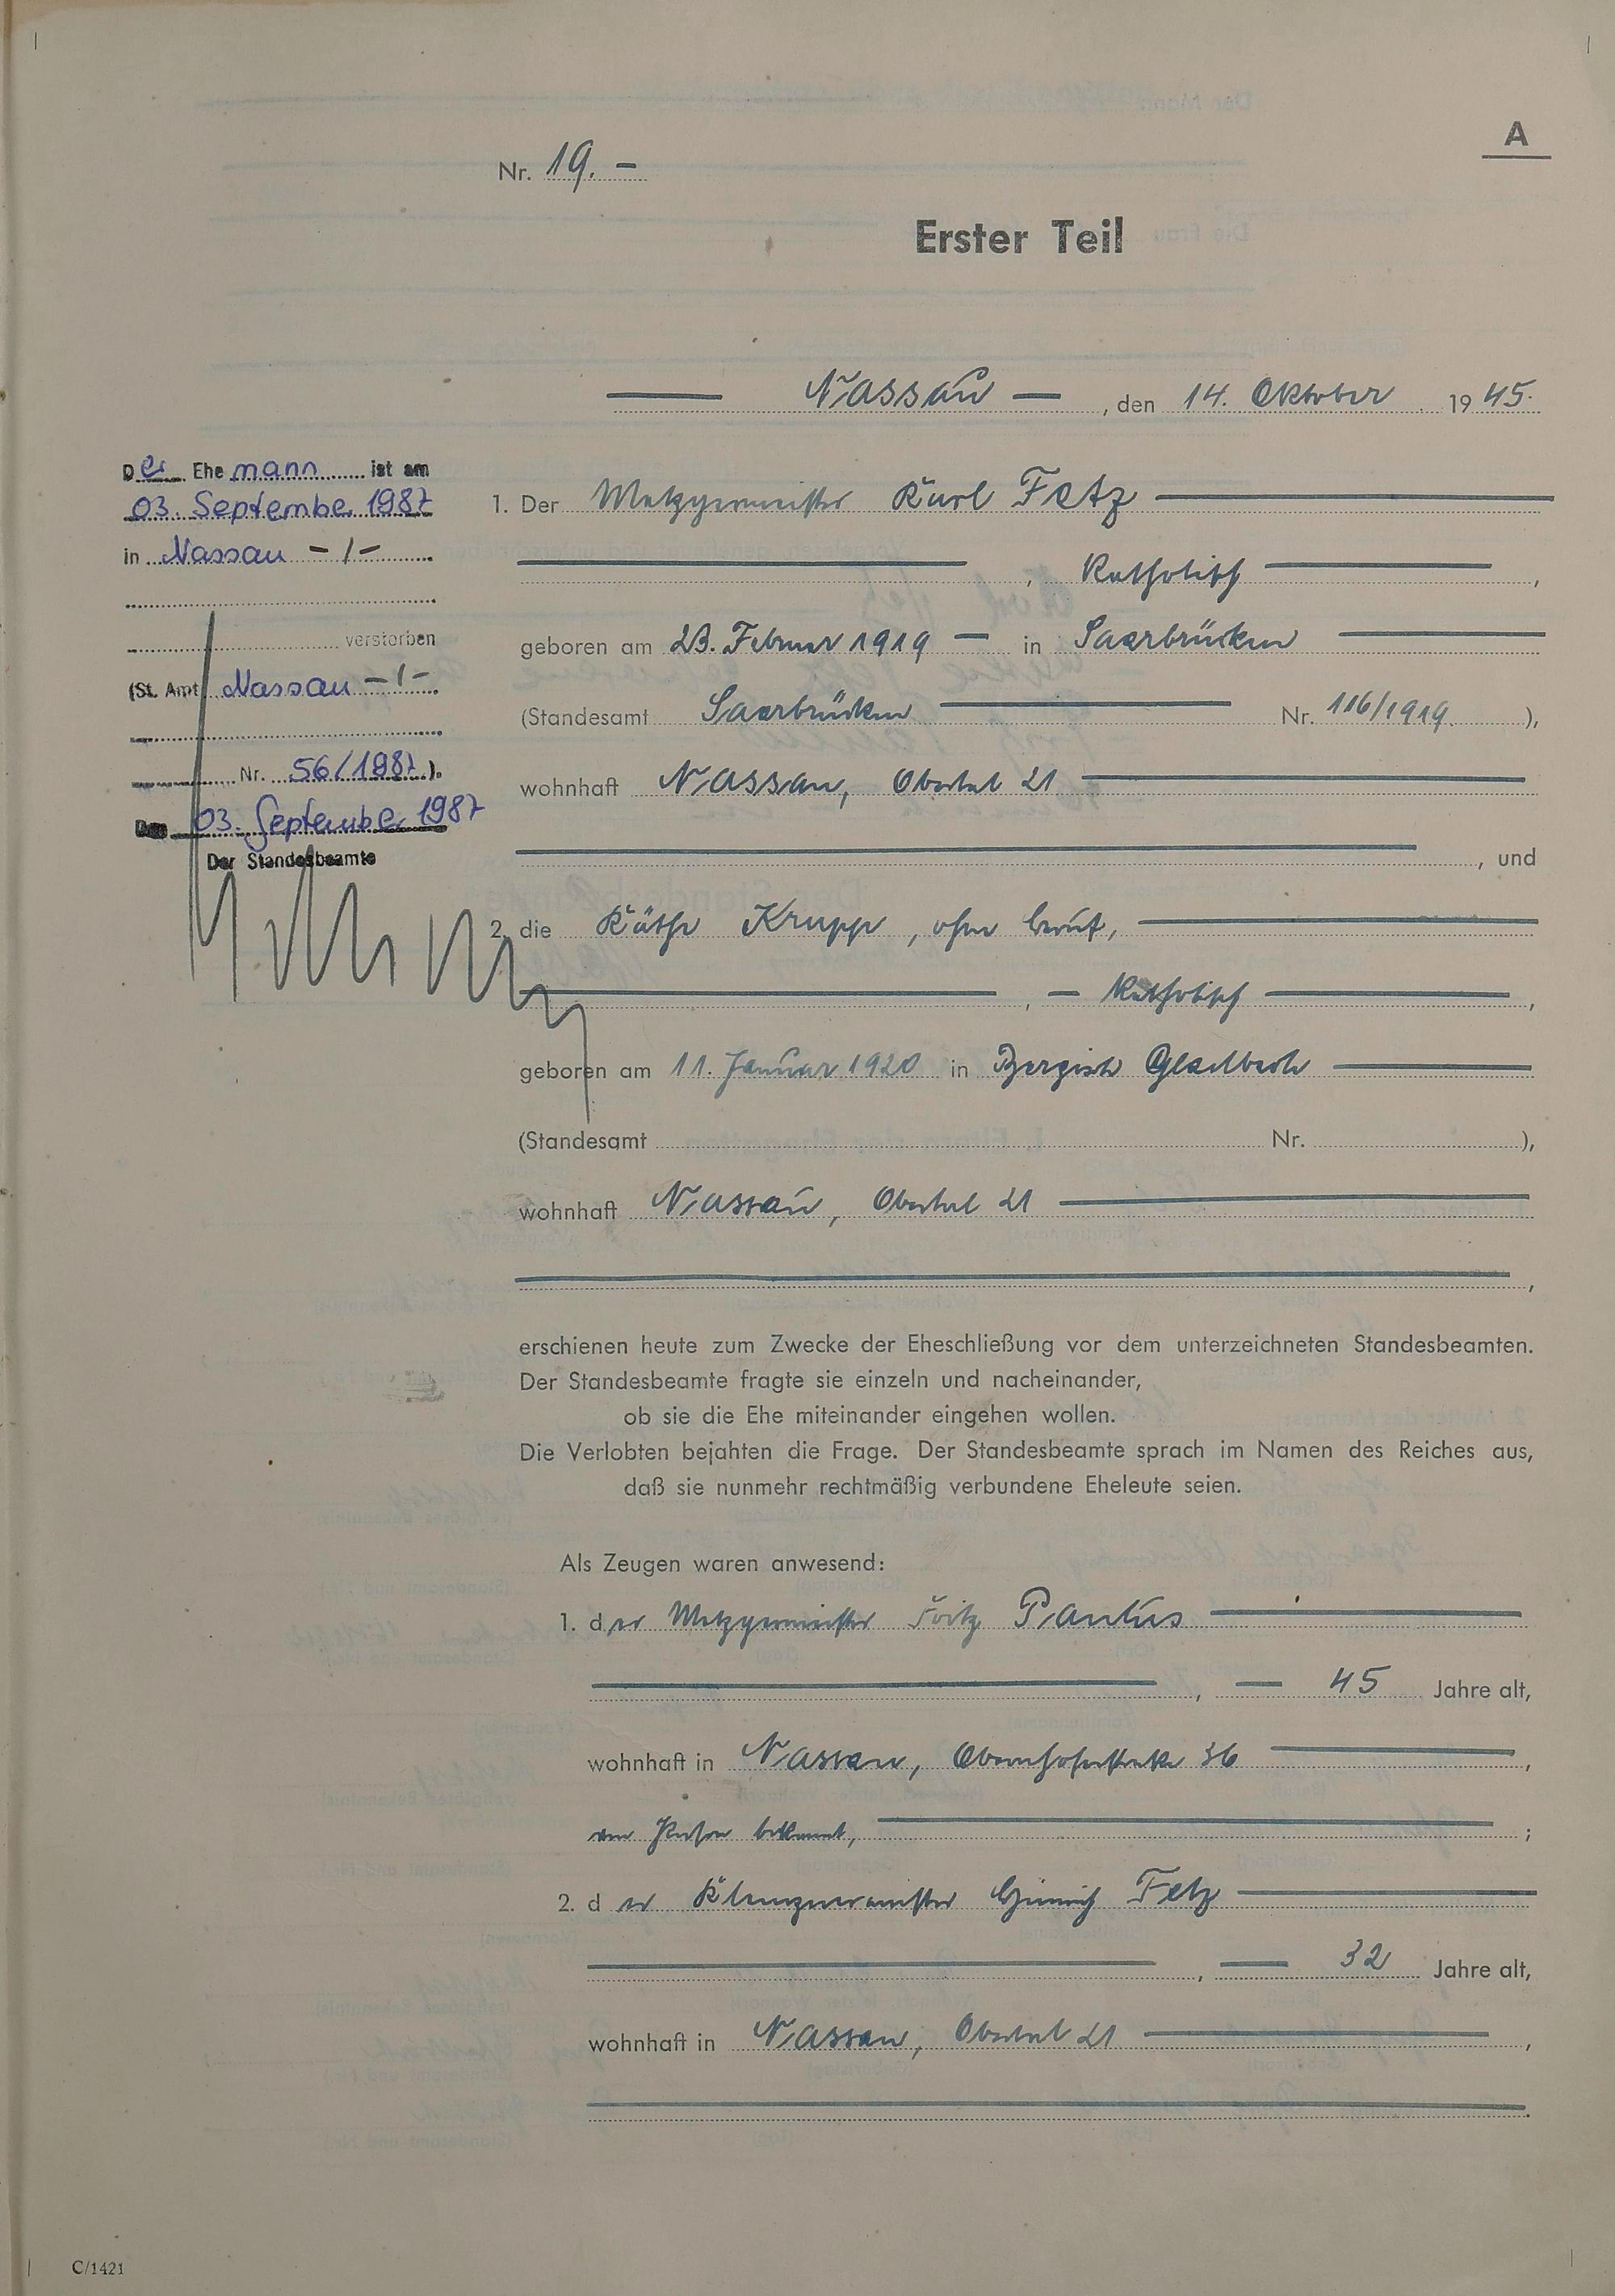 A
Nr. 19. –
Erster Teil
Nassau –, den 14. Oktober 1945.
Der Ehemann ist am
03. September 1987
in Nassau -/-
verstorben
(St. Amt Nassau -/-
Nr. 56/1987).
Den 03. September 1987
Der Standesbeamte
1. Der Metzgermeister Karl Fetz
, Katholisch ,
geboren am 23. Februar 1919 – in Saarbrücken
(Standesamt Saarbrücken Nr. 116/1919 ),
wohnhaft Nassau, Obertal 21
, und
2. die Käthe Krupp, ohne Beruf,
, – Katholisch ,
geboren am 11. Januar 1920 in Bergisch Gladbach
(Standesamt Nr. ),
wohnhaft Nassau, Obertal 21
,
erschienen heute zum Zwecke der Eheschließung vor dem unterzeichneten Standesbeamten.
Der Standesbeamte fragte sie einzeln und nacheinander,
ob sie die Ehe miteinander eingehen wollen.
Die Verlobten bejahten die Frage. Der Standesbeamte sprach im Namen des Reiches aus,
daß sie nunmehr rechtmäßig verbundene Eheleute seien.
Als Zeugen waren anwesend:
1. der Metzgermeister Fritz Paulus
, – 45 Jahre alt,
wohnhaft in Nassau, Obernhoferstraße 36 ,
von Person bekannt, ;
2. der Klempnermeister Heinrich Fetz
, – 32 Jahre alt,
wohnhaft in Nassau, Obertal 21 ,
C/1421